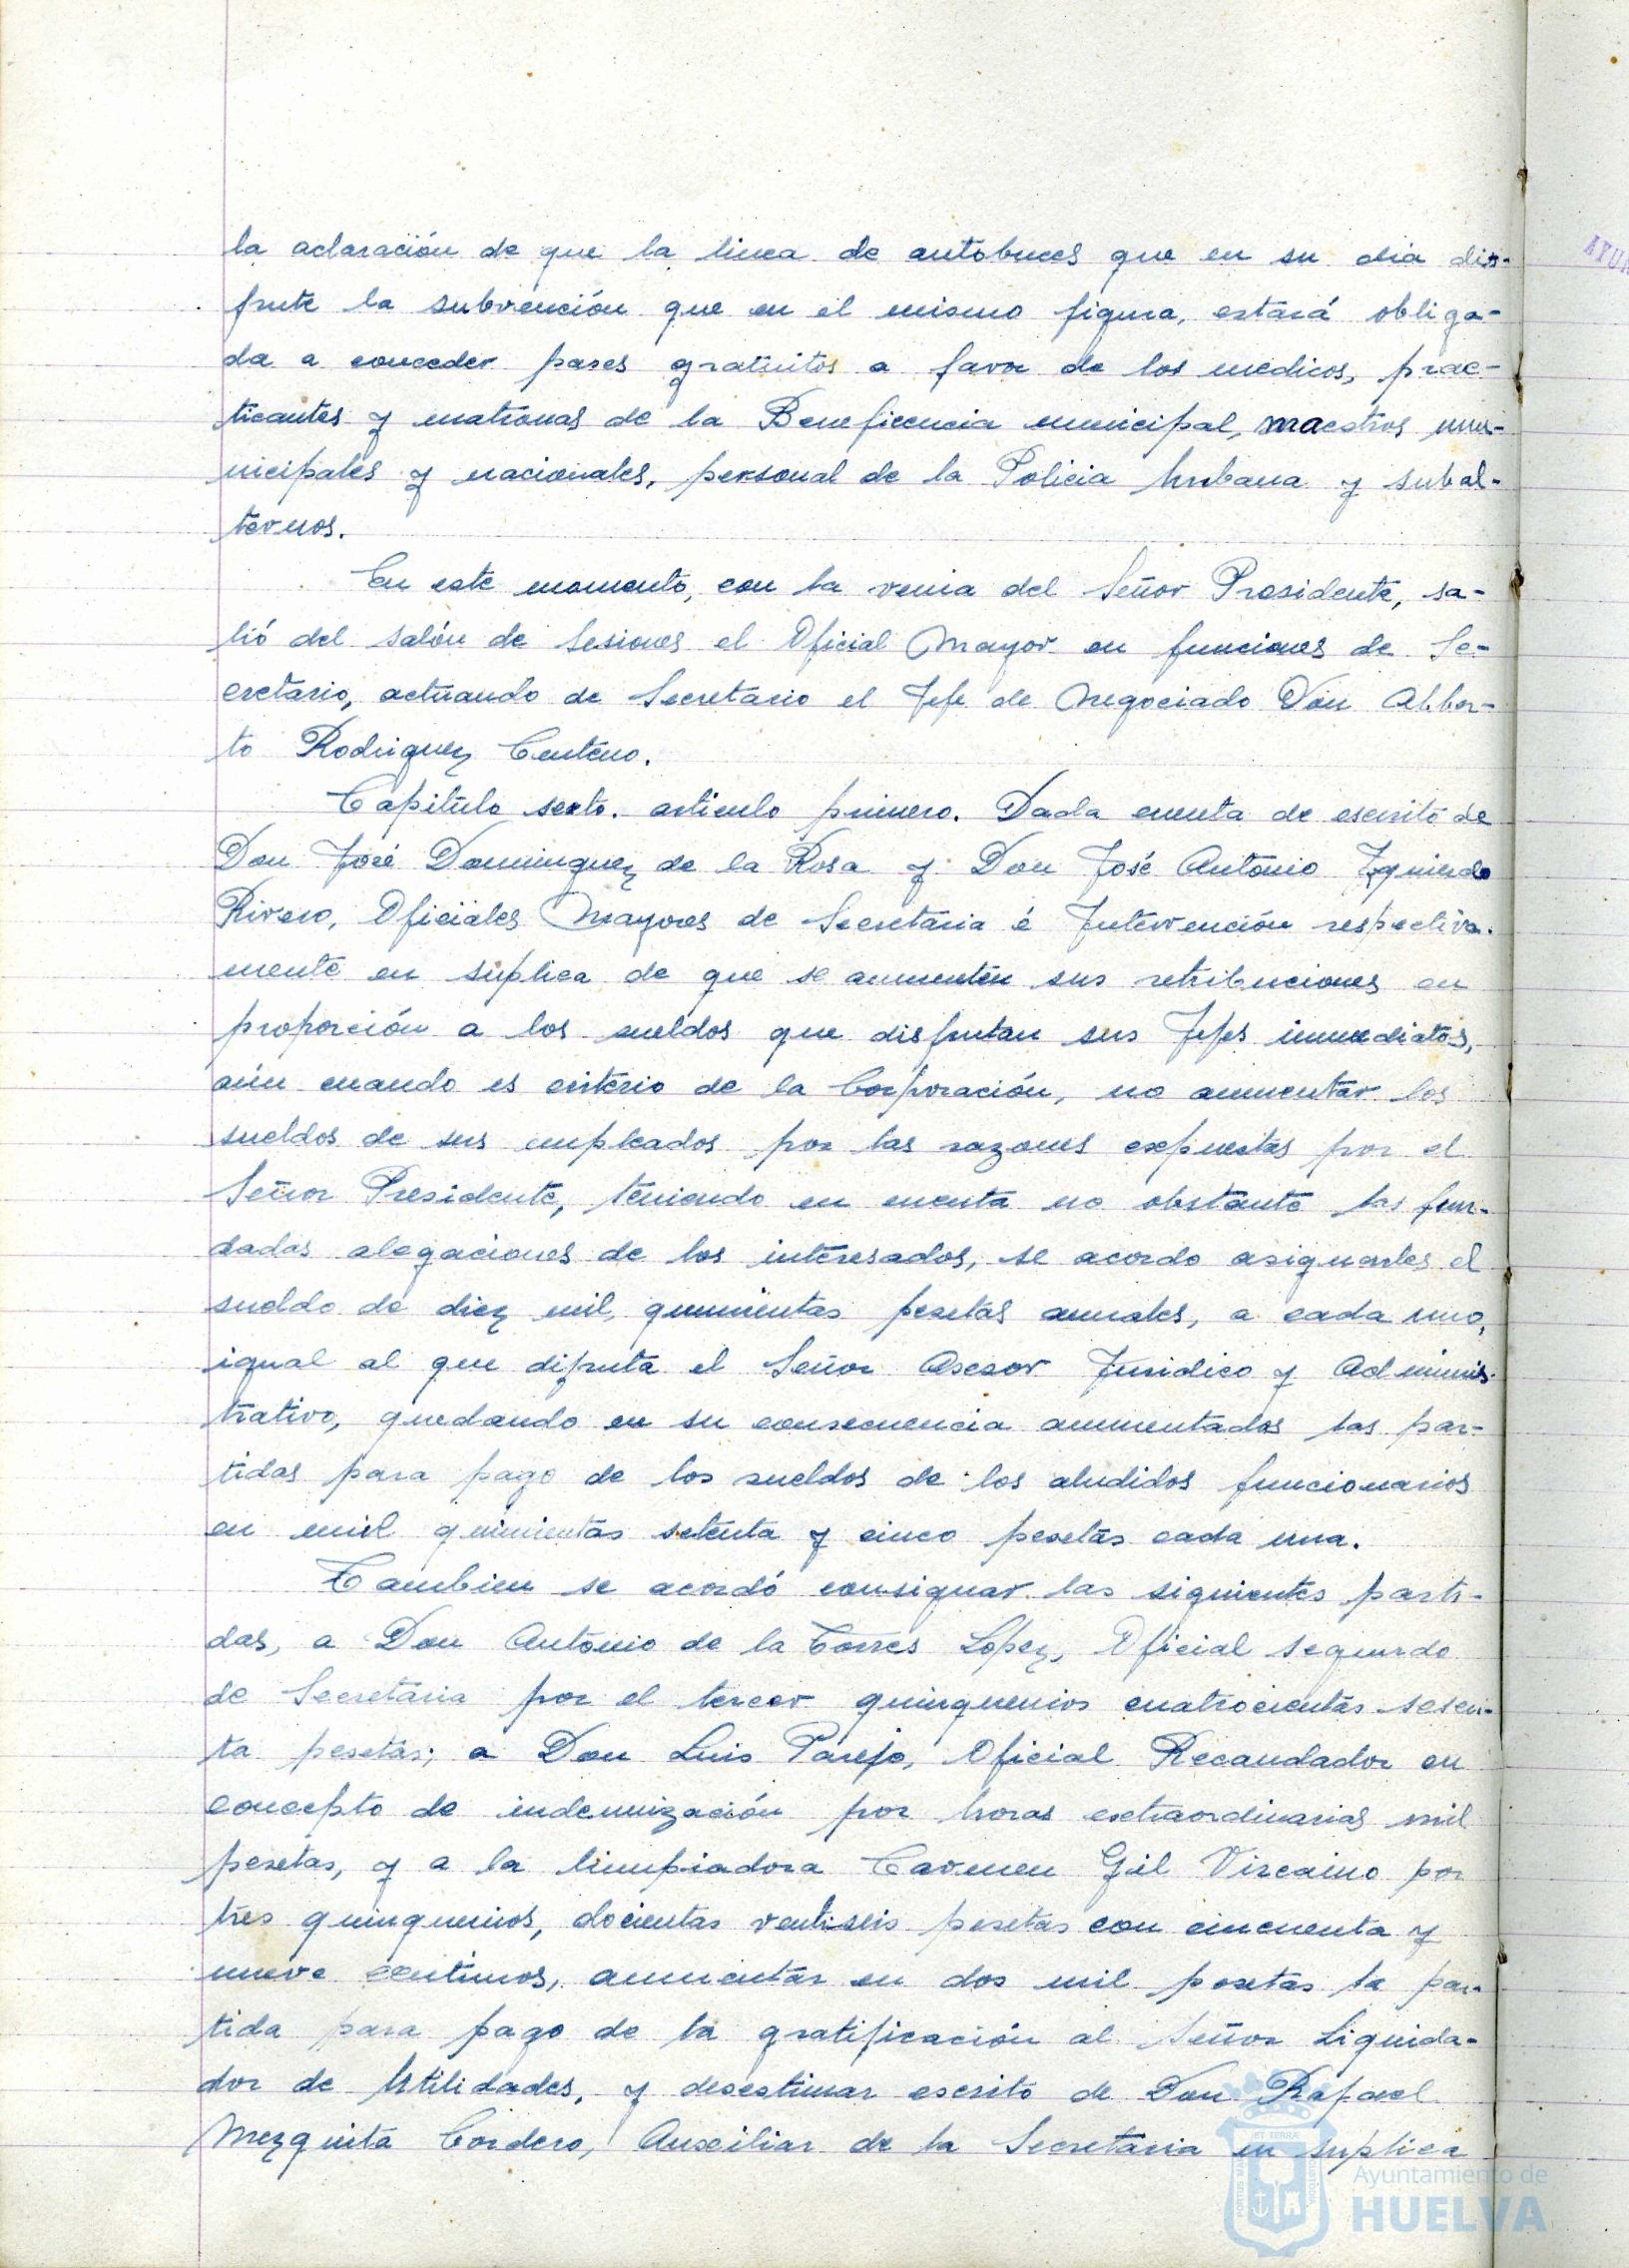 la aclaración de que la linea de autobuces que en su dia dis-
frute la subvención que en el mismo figura, estará obliga-
da a conceder pases gratuitos a favor de los medicos, prac-
ticantes y matronas de la Beneficencia municipal, maestros mu-
nicipales y nacionales, personal de la Policia Urbana y subal-
ternos.
En este momento, con la venia del Señor Presidente, sa-
lió del salón de Sesiones el Oficial Mayor en funciones de Se-
cretario, actuando de Secretario el Jefe de Negociado Don Alber-
to Rodriguez Centeno.
Capitulo sexto. articulo primero. Dada cuenta de escrito de
Don José Dominguez de la Rosa y Don José Antonio Izquierdo
Rivero, Oficiales Mayores de Secretaria é Intervención respectiva-
mente en suplica de que se aumenten sus retribuciones en
proporción a los sueldos que disfrutan sus Jefes inmediatos,
aún cuando es criterio de la Corporación, no aumentar los
sueldos de sus empleados por las razones expuestas por el
Señor Presidente, teniendo en cuenta no obstante las fun-
dadas alegaciones de los interesados, se acordo asignarles el
sueldo de diez mil, quinientas pesetas anuales, a cada uno,
igual al que difruta el Señor Asesor Juridico y Adminis-
trativo, quedando en su consecuencia aumentados las par-
tidas para pago de los sueldos de los aludidos funcionarios
en mil quinientas setenta y cinco pesetas cada una.
Tambien se acordó consignar las siguientes parti-
das, a Don Antonio de la Torres Lopez, Oficial segundo
de Secretaria por el tercer quinquenios cuatrocientas sesen-
ta pesetas; a Don Luis Parejo, Oficial Recaudador en
concepto de indemnización por horas extraordinarias mil
pesetas, y a la limpiadora Carmen Gil Vizcaino por
tres quinquenios, docientas ventiseis pesetas con cincuenta y
nueve centimos, aumentar en dos mil pesetas la par-
tida para pago de la gratificación al Señor Liquida-
dor de Utilidades, y desestimar escrito de Don Rafael
Mezquita Cordero, Auxiliar de la Secretaria en suplica
Ayuntamiento de
HUELVA